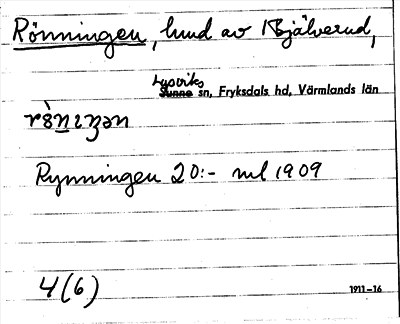 Rönningen, lund av Bjälverud,
Lysviks
Sunne sn, Fryksdals hd, Värmlands län
rö̀nıŋən
Rynningen 20:- ml 1909
4(6)
1911-16